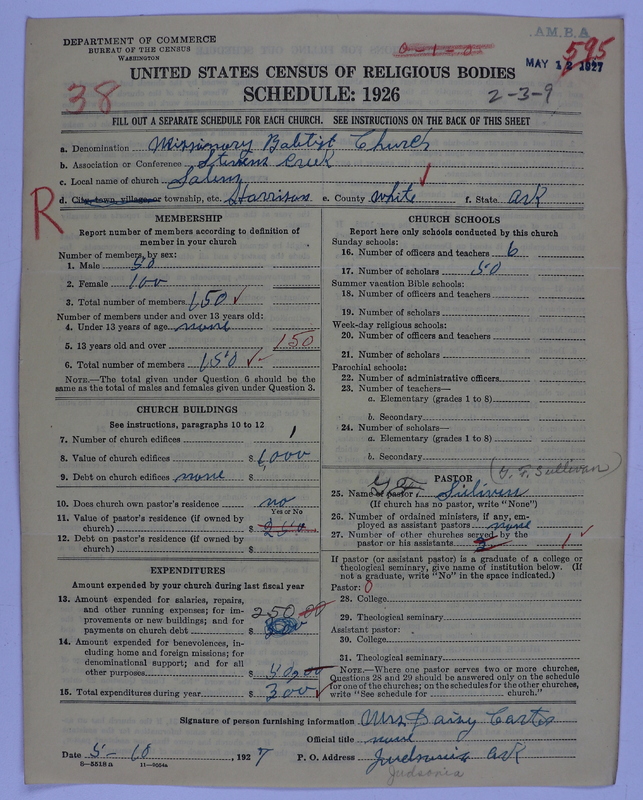 DEPARTMENT OF COMMERCE
BUREAU OF THE CENSUS
WASHINGTON
0-1-0
A.M.B.A.
595
MAY 12 1927
UNITED STATES CENSUS OF RELIGIOUS BODIES
38
SCHEDULE: 1926
2-3-9
FILL OUT A SEPARATE SCHEDULE FOR EACH CHURCH. SEE INSTRUCTIONS ON THE BACK OF THIS SHEET
a. Denomination Missionary Babtist Church
b. Association or Conference Stevens Creek
c. Local name of church Salem
R
d. City, town, village, or township, etc. Harrison e. County White f. State Ark
MEMBERSHIP
Report number of members according to definition of member in your church
Number of members, by sex:
1. Male 50
2. Female 100
3. Total number of members 150 ✓
Number of members under and over 13 years old:
4. Under 13 years of age none
5. 13 years old and over 150
6. Total number of members 150 ✓
NOTE.—The total given under Question 6 should be the same as the total of males and females given under Question 3.
CHURCH BUILDINGS
See instructions, paragraphs 10 to 12
7. Number of church edifices 1
8. Value of church edifices $ 1,000
9. Debt on church edifices none $
10. Does church own pastor's residence no
Yes or No
11. Value of pastor's residence (if owned by church) $ 200
12. Debt on pastor's residence (if owned by church) $
EXPENDITURES
Amount expended by your church during last fiscal year
13. Amount expended for salaries, repairs, and other running expenses; for improvements or new buildings; and for payments on church debt $ 250.00
14. Amount expended for benevolences, including home and foreign missions; for denominational support; and for all other purposes $
15. Total expenditures during year $ 300 ✓
CHURCH SCHOOLS
Report here only schools conducted by this church
Sunday schools:
16. Number of officers and teachers 6
17. Number of scholars 50
Summer vacation Bible schools:
18. Number of officers and teachers
19. Number of scholars
Week-day religious schools:
20. Number of officers and teachers
21. Number of scholars
Parochial schools:
22. Number of administrative officers
23. Number of teachers—
a. Elementary (grades 1 to 8)
b. Secondary
24. Number of scholars—
a. Elementary (grades 1 to 8)
b. Secondary
PASTOR
25. Name of pastor Suliven
(If church has no pastor, write "None")
26. Number of ordained ministers, if any, employed as assistant pastors none
27. Number of other churches served by the pastor or his assistants 2 1 ✓
If pastor (or assistant pastor) is a graduate of a college or theological seminary, give name of institution below. (If not a graduate, write "No" in the space indicated.)
Pastor: 0
28. College
29. Theological seminary
Assistant pastor:
30. College
31. Theological seminary
NOTE.—Where one pastor serves two or more churches, Questions 28 and 29 should be answered only on the schedule for one of the churches; on the schedules for the other churches, write "See schedule for church."
Signature of person furnishing information Mrs Daisy Carter
Official title none
Date 5-10, 1927 P. O. Address Judsonia Ark
Judsonia
8-5518 a